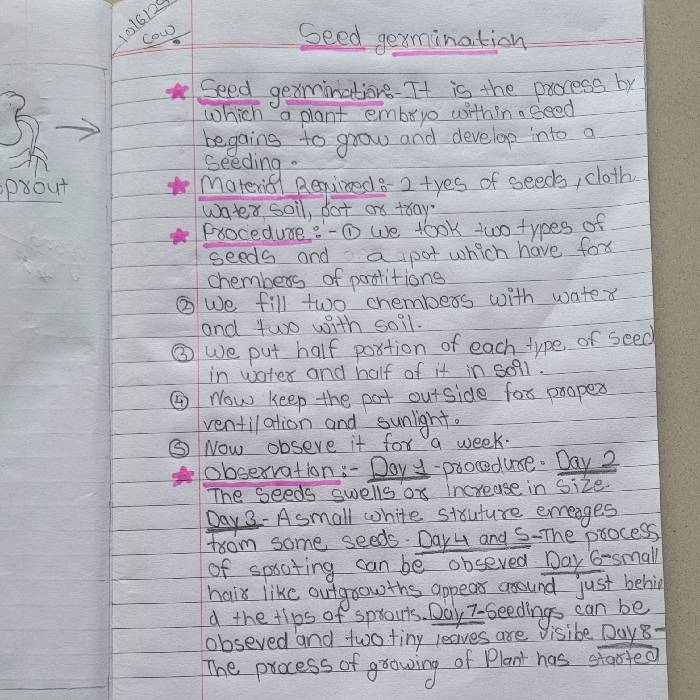 10/6/25
COW.
Seed germination
sprout
Seed germination:- It is the process by
which a plant embryo within a seed
begains to grow and develop into a
seeding.
Material Required:- 2 tyes of seeds, cloth
water soil, pot or tray.
Procedure:- ① We took two types of
seeds and a pot which have for
chembers of partitions
② We fill two chembers with water
and two with soil.
③ We put half portion of each type of seed
in water and half of it in soil.
④ Now keep the pot outside for proper
ventilation and sunlight.
⑤ Now obseve it for a week.
Observation:- Day 1-procedure. Day 2
The seeds swells or increase in size.
Day 3- A small white struture emeages
from some seeds. Day 4 and 5-The process
of sproting can be obseved Day 6-small
hair like outgrowths appear around just behin
d the tips of sprouts. Day 7-Seedings can be
obseved and two tiny leaves are visibe Day 8-
The process of growing of Plant has started